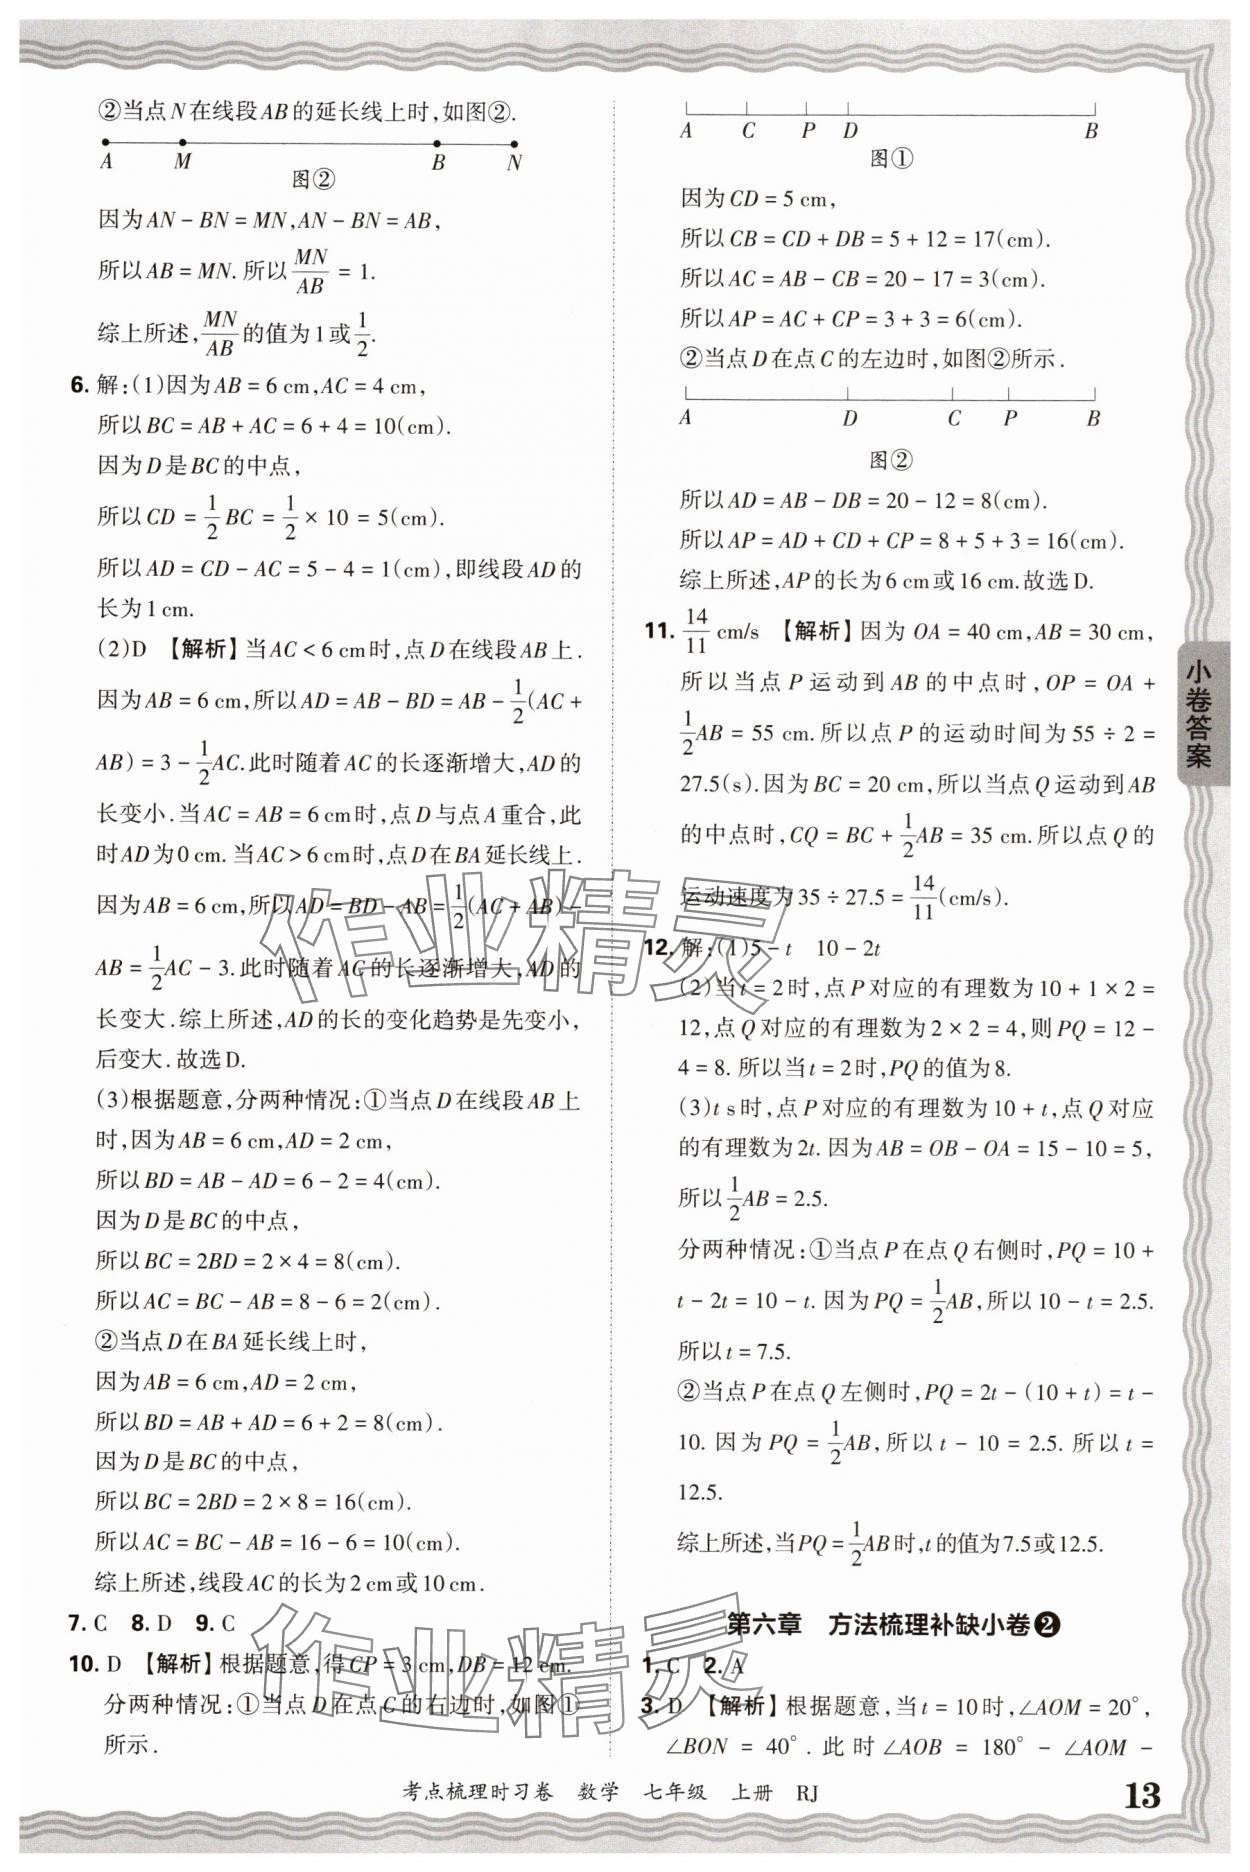 ②当点N在线段AB的延长线上时,如图②.
A M B N
图②
因为AN-BN=MN,AN-BN=AB,
所以AB=MN.所以MN/AB=1.
综上所述,MN/AB的值为1或1/2.
6.解:(1)因为AB=6 cm,AC=4 cm,
所以BC=AB+AC=6+4=10(cm).
因为D是BC的中点,
所以CD=1/2BC=1/2×10=5(cm).
所以AD=CD-AC=5-4=1(cm),即线段AD的
长为1 cm.
(2)D 【解析】当AC<6 cm时,点D在线段AB上.
因为AB=6 cm,所以AD=AB-BD=AB-1/2(AC+
AB)=3-1/2AC.此时随着AC的长逐渐增大,AD的
长变小.当AC=AB=6 cm时,点D与点A重合,此
时AD为0 cm.当AC>6 cm时,点D在BA延长线上.
因为AB=6 cm,所以AD=BD-AB=1/2(AC+AB)-
AB=1/2AC-3.此时随着AC的长逐渐增大,AD的
长变大.综上所述,AD的长的变化趋势是先变小,
后变大.故选D.
(3)根据题意,分两种情况:①当点D在线段AB上
时,因为AB=6 cm,AD=2 cm,
所以BD=AB-AD=6-2=4(cm).
因为D是BC的中点,
所以BC=2BD=2×4=8(cm).
所以AC=BC-AB=8-6=2(cm).
②当点D在BA延长线上时,
因为AB=6 cm,AD=2 cm,
所以BD=AB+AD=6+2=8(cm).
因为D是BC的中点,
所以BC=2BD=2×8=16(cm).
所以AC=BC-AB=16-6=10(cm).
综上所述,线段AC的长为2 cm或10 cm.
7. C 8. D 9. C
10. D 【解析】根据题意,得CP=3 cm,DB=12 cm.
分两种情况:①当点D在点C的右边时,如图①
所示.
A C P D B
图①
因为CD=5 cm,
所以CB=CD+DB=5+12=17(cm).
所以AC=AB-CB=20-17=3(cm).
所以AP=AC+CP=3+3=6(cm).
②当点D在点C的左边时,如图②所示.
A D C P B
图②
所以AD=AB-DB=20-12=8(cm).
所以AP=AD+CD+CP=8+5+3=16(cm).
综上所述,AP的长为6 cm或16 cm.故选D.
11. 14/11 cm/s 【解析】因为OA=40 cm,AB=30 cm,
所以当点P运动到AB的中点时,OP=OA+
1/2AB=55 cm.所以点P的运动时间为55÷2=
27.5(s).因为BC=20 cm,所以当点Q运动到AB
的中点时,CQ=BC+1/2AB=35 cm.所以点Q的
运动速度为35÷27.5=14/11(cm/s).
12.解:(1)5-t 10-2t
(2)当t=2时,点P对应的有理数为10+1×2=
12,点Q对应的有理数为2×2=4,则PQ=12-
4=8.所以当t=2时,PQ的值为8.
(3)t s时,点P对应的有理数为10+t,点Q对应
的有理数为2t.因为AB=OB-OA=15-10=5,
所以1/2AB=2.5.
分两种情况:①当点P在点Q右侧时,PQ=10+
t-2t=10-t.因为PQ=1/2AB,所以10-t=2.5.
所以t=7.5.
②当点P在点Q左侧时,PQ=2t-(10+t)=t-
10.因为PQ=1/2AB,所以t-10=2.5.所以t=
12.5.
综上所述,当PQ=1/2AB时,t的值为7.5或12.5.
第六章 方法梳理补缺小卷❷
1. C 2. A
3. D 【解析】根据题意,当t=10时,∠AOM=20°,
∠BON=40°.此时∠AOB=180°-∠AOM-
小卷答案
作业精灵
作业精灵
考点梳理时习卷 数学 七年级 上册 RJ
13